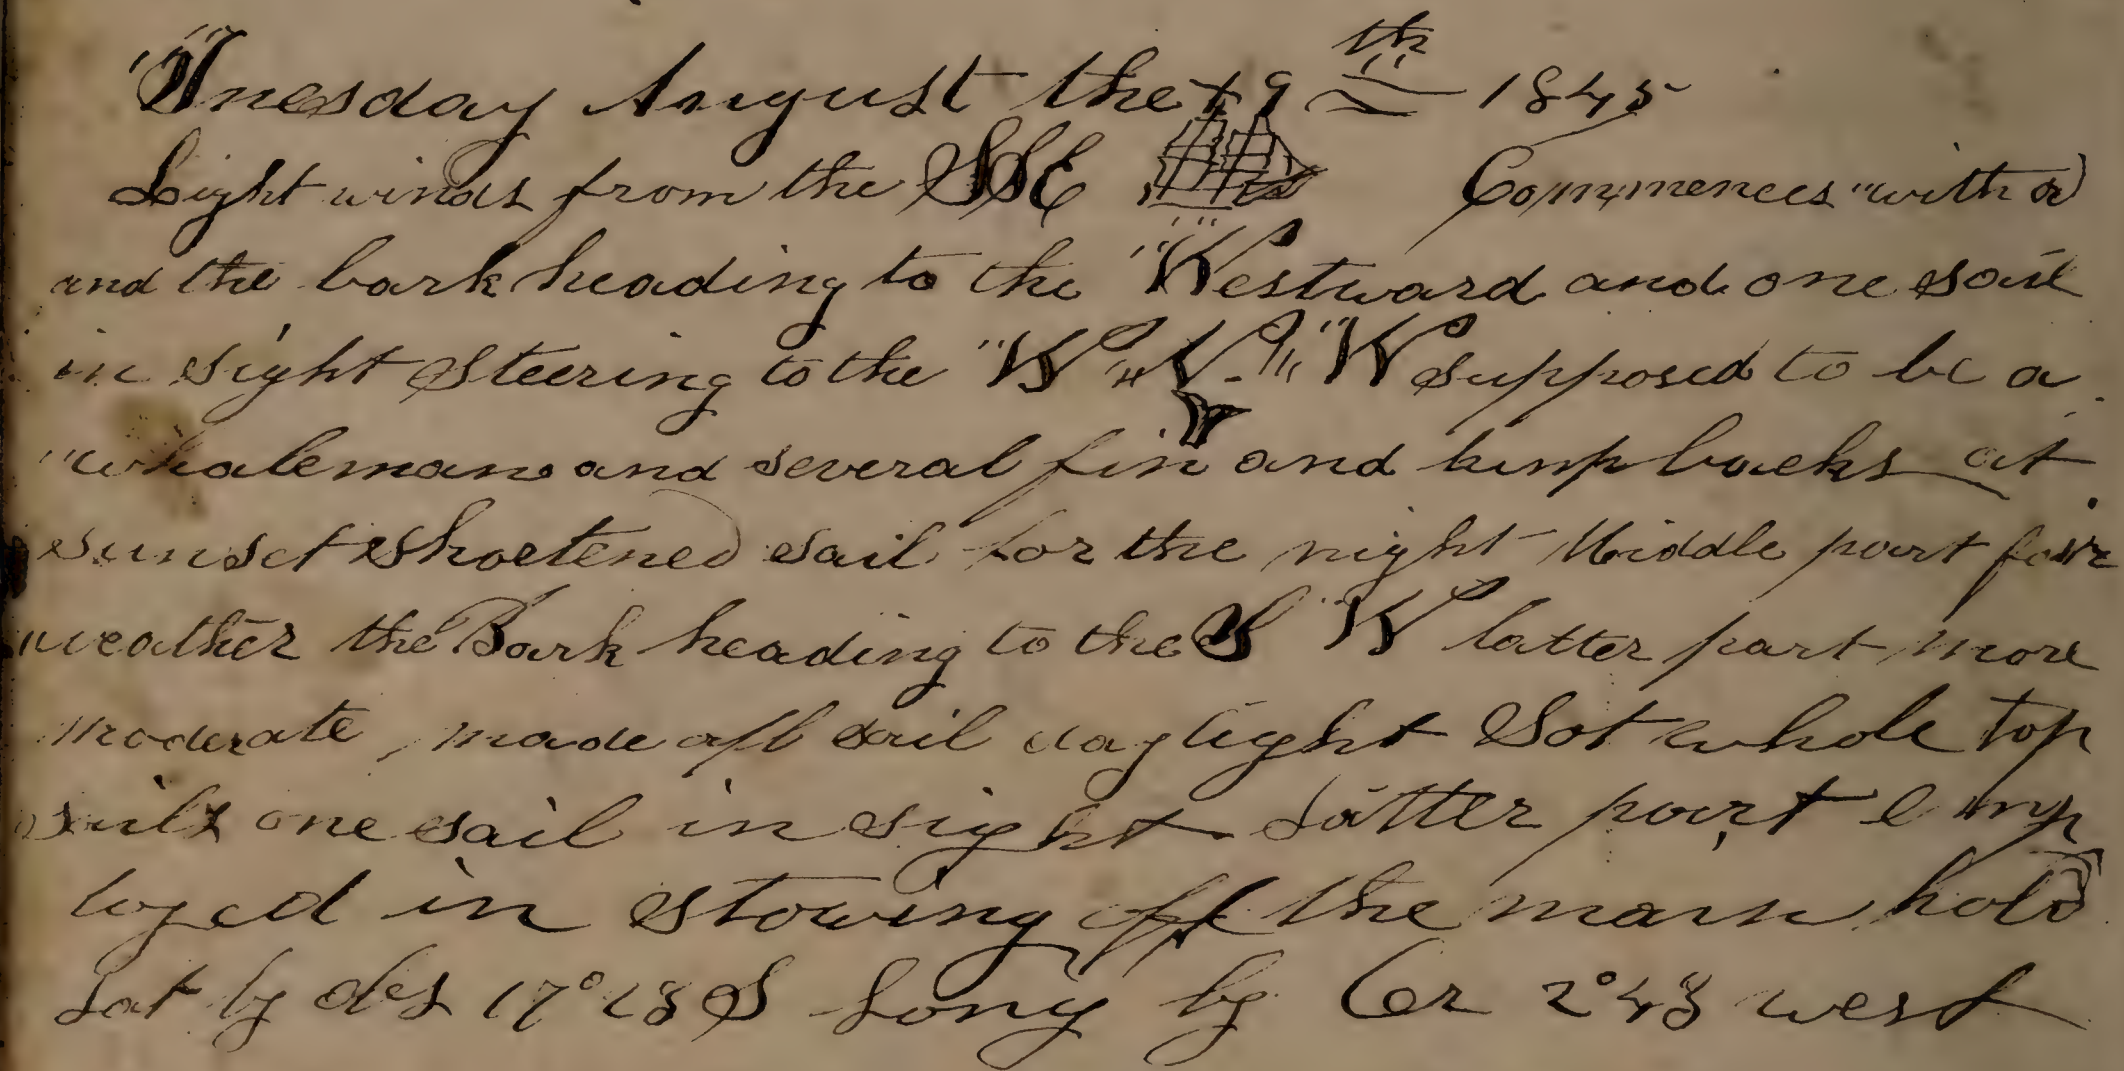 Tuesday August the 19th 1845
Light winds from the SSE Commences with a
and the bark heading to the Westward and one sail
in sight steering to the W N W supposed to be a
whaleman and several fin and hump backs at
sunset shoetened sail for the night Middle part fair
weather the Bark heading to the S W latter part more
moderate, made all sail daylight Sot whole top
sails one sail in sight Latter part emp
loyed in stowing off the main hold
Lat by obs 17° 18 S Long by Cr 2° 43 west